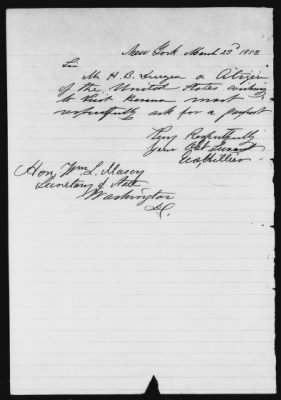 New York March 1858
Sir
Mr H. B. a Citizen
of the United States wishing
to visit most
respectfully ask for a passport
Very Respectfully
Your Obt Servant
Hillier
Hon, Wm L. Marcy
Secretary of State
Washington
D.C.